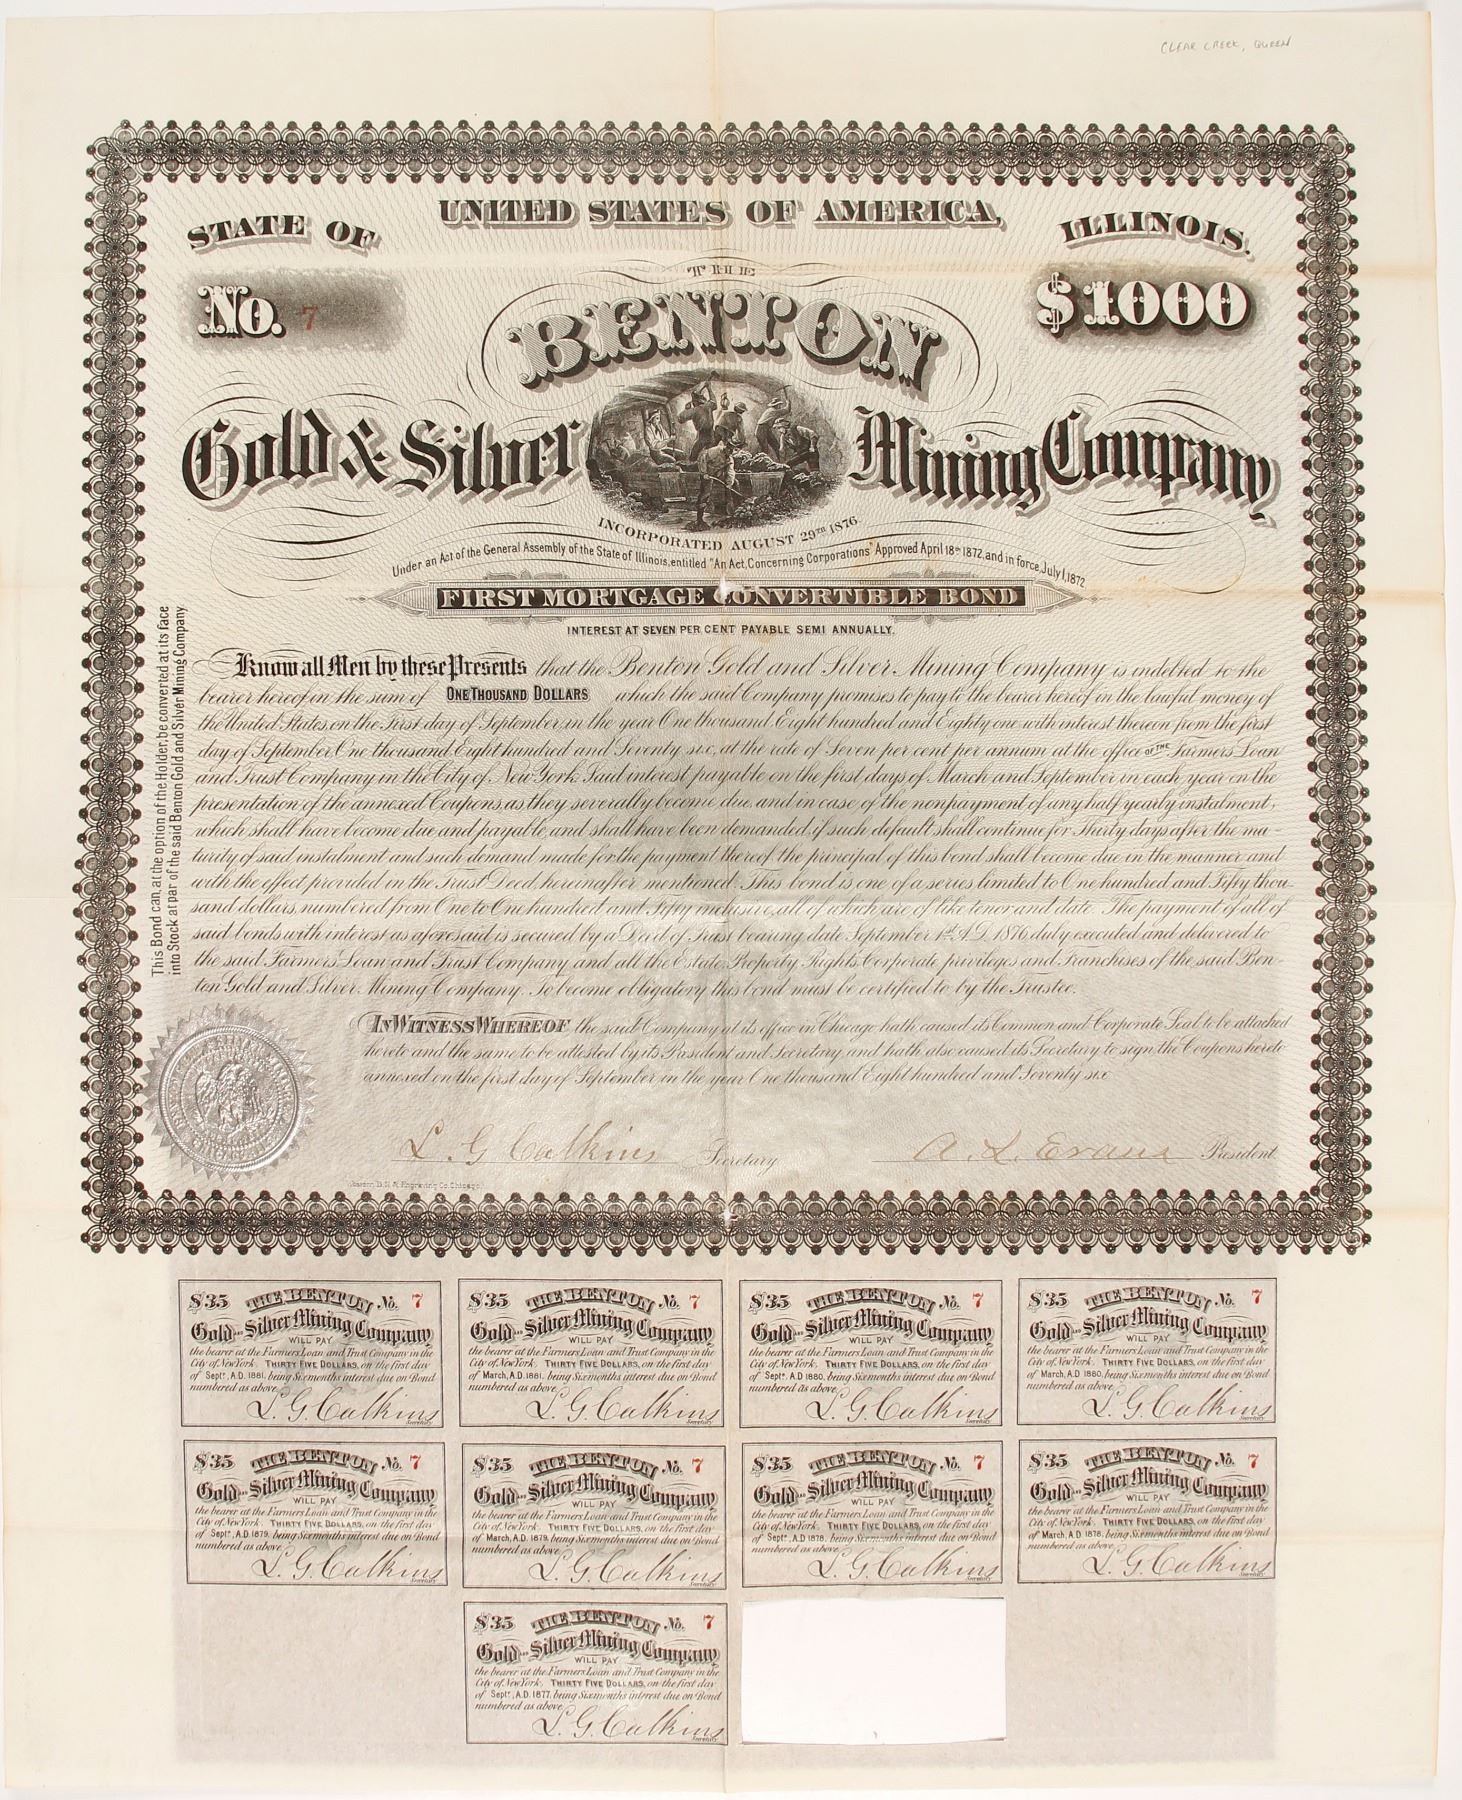 CLEAR CREEK, QUEEN
UNITED STATES OF AMERICA,
STATE OF ILLINOIS.
No. 7 $1000
THE
BENTON
Gold & Silver Mining Company
INCORPORATED AUGUST 29TH 1876
Under an Act of the General Assembly of the State of Illinois, entitled "An Act, Concerning Corporations" Approved April 18th 1872, and in force, July 1, 1872
FIRST MORTGAGE CONVERTIBLE BOND
INTEREST AT SEVEN PER CENT PAYABLE SEMI ANNUALLY.
This Bond can, at the option of the Holder, be converted at its face
into Stock at par of the said Benton Gold and Silver Mining Company
Know all Men by these Presents that the Benton Gold and Silver Mining Company is indebted to the
bearer hereof in the sum of ONE THOUSAND DOLLARS which the said Company promises to pay to the bearer hereof in the lawful money of
the United States, on the First day of September in the year One thousand Eight hundred and Eighty one with interest thereon from the first
day of September One thousand Eight hundred and Seventy six, at the rate of Seven per cent per annum at the office OF THE Farmers Loan
and Trust Company in the City of New York. Said interest payable on the first days of March and September in each year on the
presentation of the annexed Coupons, as they severally become due, and in case of the nonpayment of any half yearly instalment,
which shall have become due and payable, and shall have been demanded, if such default shall continue for Thirty days after the ma-
turity of said instalment and such demand made for the payment thereof, the principal of this bond shall become due in the manner and
with the effect provided in the Trust Deed, hereinafter mentioned. This bond is one of a series limited to One hundred and Fifty thou-
sand dollars, numbered from One to One hundred and Fifty inclusive, all of which are of like tenor and date. The payment of all of
said bonds with interest as aforesaid is secured by a Deed of Trust bearing date September 1st A.D. 1876 duly executed and delivered to
the said Farmers' Loan and Trust Company and all the Estate, Property, Rights, Corporate privileges and Franchises of the said Ben-
ton Gold and Silver Mining Company. To become obligatory this bond must be certified to by the Trustee.
IN WITNESS WHEREOF the said Company at its office in Chicago hath caused its Common and Corporate Seal to be attached
hereto and the same to be attested by its President and Secretary, and hath also caused its Secretary to sign the Coupons hereto
annexed on the first day of September in the year One thousand Eight hundred and Seventy six
L. G. Calkins Secretary A. L. Evans President
Engraving Co. Chicago
$35 THE BENTON No. 7
Gold and Silver Mining Company
WILL PAY
the bearer at the Farmers Loan and Trust Company in the
City of New York. THIRTY FIVE DOLLARS, on the first day
of Sept., A.D. 1881, being Six months interest due on Bond
numbered as above.
L. G. Calkins
Secretary
$35 THE BENTON No. 7
Gold and Silver Mining Company
WILL PAY
the bearer at the Farmers Loan and Trust Company in the
City of New York. THIRTY FIVE DOLLARS, on the first day
of March, A.D. 1881, being Six months interest due on Bond
numbered as above.
L. G. Calkins
Secretary
$35 THE BENTON No. 7
Gold and Silver Mining Company
WILL PAY
the bearer at the Farmers Loan and Trust Company in the
City of New York. THIRTY FIVE DOLLARS, on the first day
of Sept., A.D 1880, being Six months interest due on Bond
numbered as above.
L. G. Calkins
Secretary
$35 THE BENTON No. 7
Gold and Silver Mining Company
WILL PAY
the bearer at the Farmers Loan and Trust Company in the
City of New York. THIRTY FIVE DOLLARS, on the first day
of March, A.D 1880, being Six months interest due on Bond
numbered as above.
L. G. Calkins
Secretary
$35 THE BENTON No. 7
Gold and Silver Mining Company
WILL PAY
the bearer at the Farmers Loan and Trust Company in the
City of New York. THIRTY FIVE DOLLARS, on the first day
of Sept., A.D. 1879, being Six months interest due on Bond
numbered as above.
L. G. Calkins
Secretary
$35 THE BENTON No. 7
Gold and Silver Mining Company
WILL PAY
the bearer at the Farmers Loan and Trust Company in the
City of New York. THIRTY FIVE DOLLARS, on the first day
of March, A.D. 1879, being Six months interest due on Bond
numbered as above.
L. G. Calkins
Secretary
$35 THE BENTON No. 7
Gold and Silver Mining Company
WILL PAY
the bearer at the Farmers Loan and Trust Company in the
City of New York. THIRTY FIVE DOLLARS, on the first day
of Sept., A.D. 1878, being Six months interest due on Bond
numbered as above.
L. G. Calkins
Secretary
$35 THE BENTON No. 7
Gold and Silver Mining Company
WILL PAY
the bearer at the Farmers Loan and Trust Company in the
City of New York. THIRTY FIVE DOLLARS, on the first day
of March, A.D. 1878, being Six months interest due on Bond
numbered as above.
L. G. Calkins
Secretary
$35 THE BENTON No. 7
Gold and Silver Mining Company
WILL PAY
the bearer at the Farmers Loan and Trust Company in the
City of New York. THIRTY FIVE DOLLARS, on the first day
of Sept., A.D. 1877, being Six months interest due on Bond
numbered as above.
L. G. Calkins
Secretary